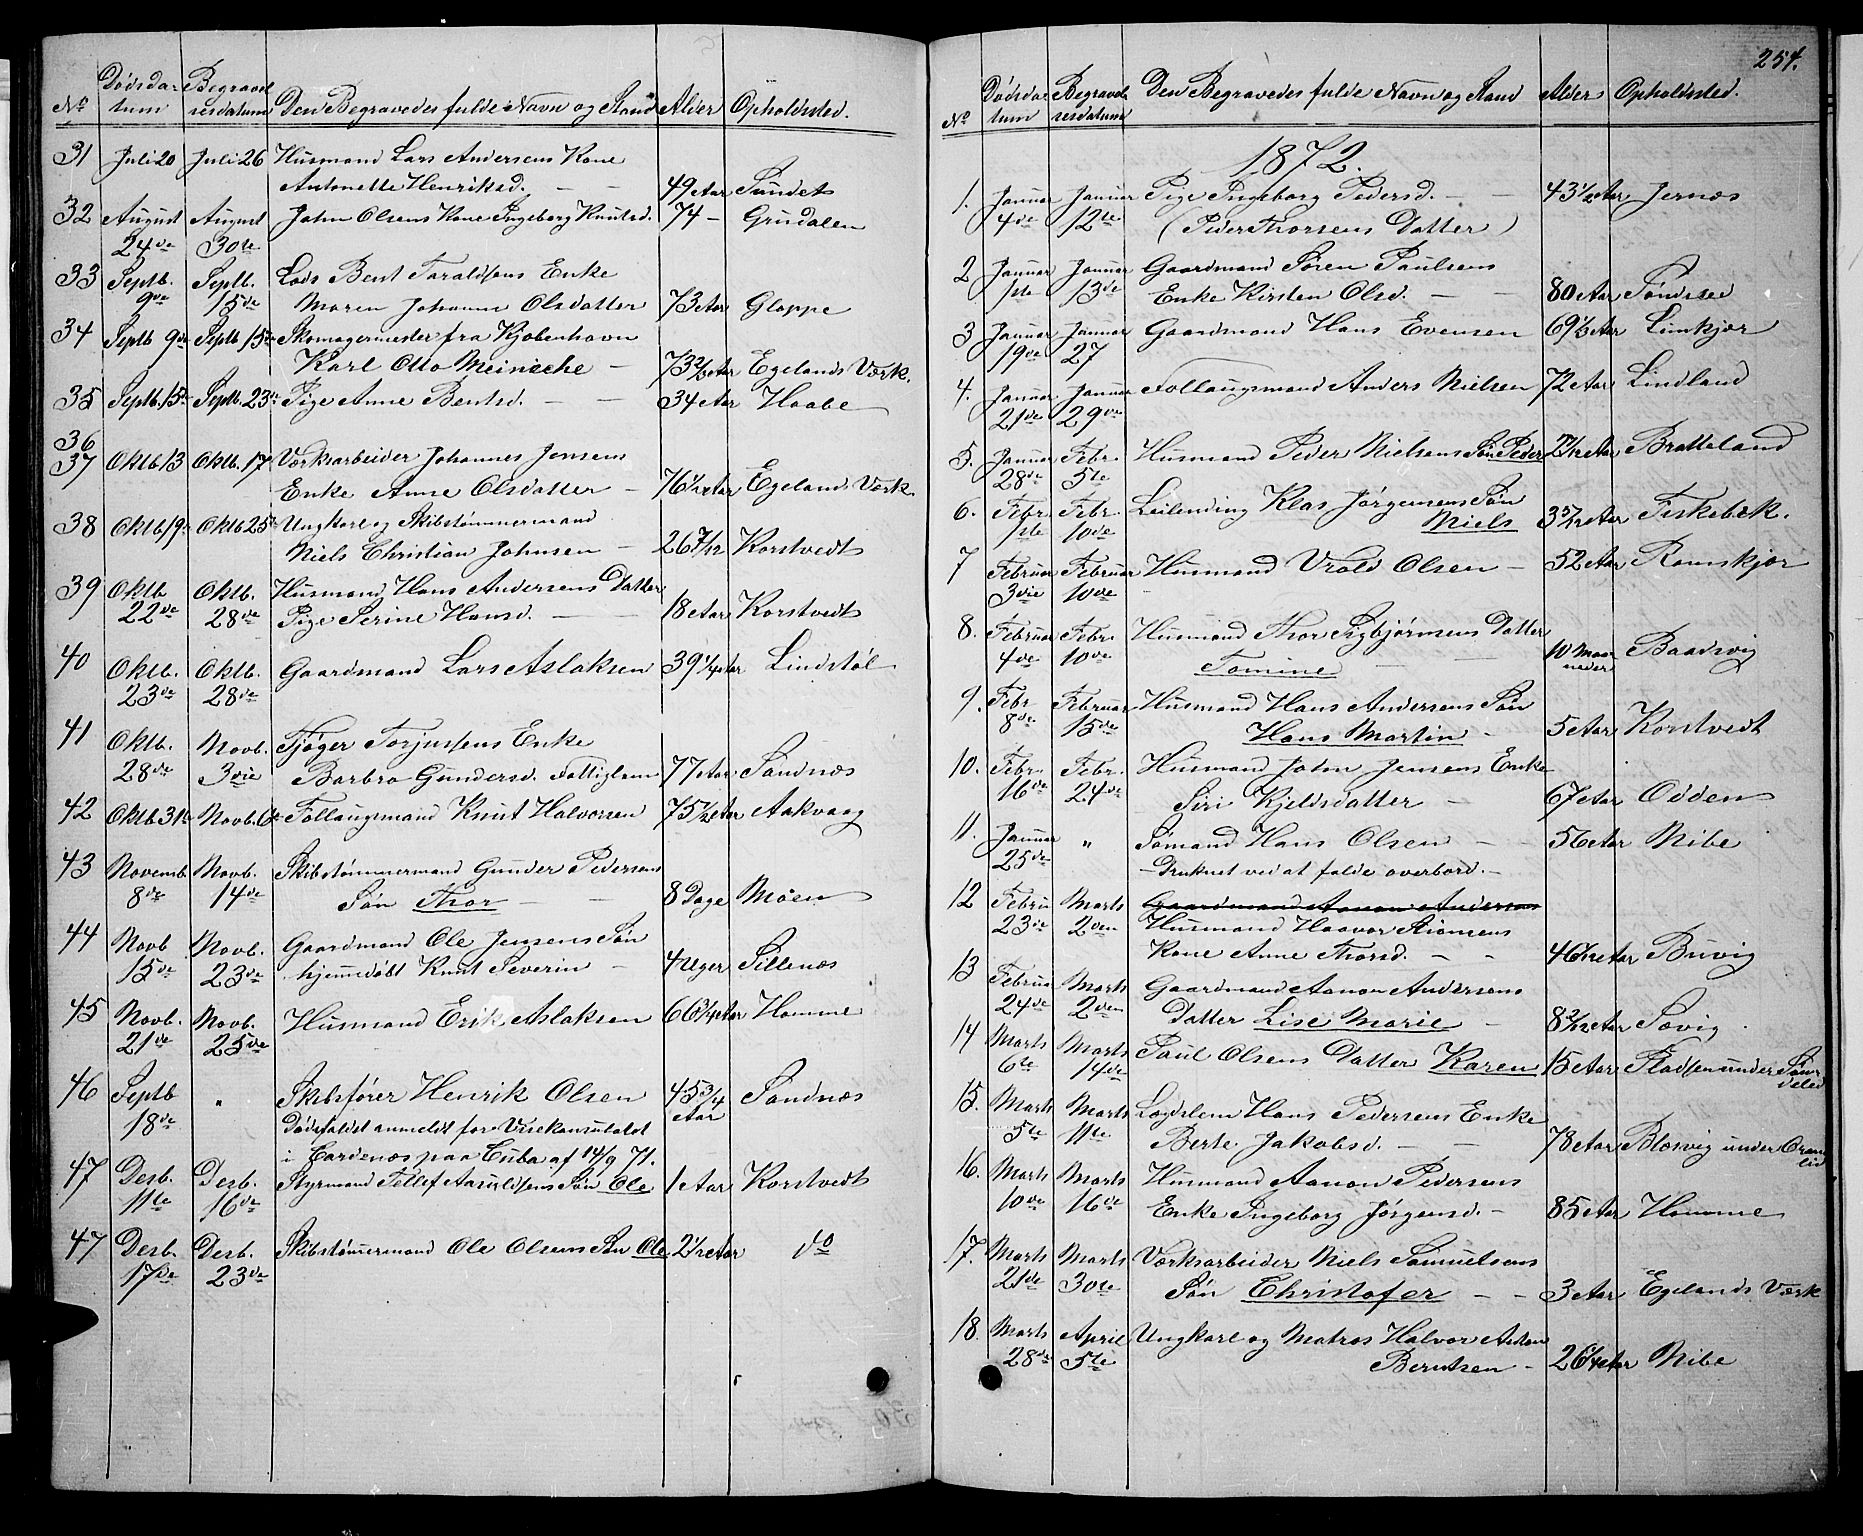 Dødsda- Begravel-
No tum resdatum Den Begravedes fulde Navn og Stand Alder Opholdsted.
31 Juli 20 Juli 26 Husmand Lars Andersens Kone
Antonette Henriksd. — — 49 Aar Sundet
32 August August John Olsens Kone Ingeborg Knutsd. 74 — Grusdalen
24de 30te
33 Septb. Septb. Lods Bent Taraldsens Enke
9de 15de Maren Johanne Olsdatter 73 Aar Gloppe
34 Septb 9de Septb. 15de Skomagermester fra Kjøbenhavn
Karl Otto Meineche — 73 Aar Egelands Værk.
35 Septb. 15de Septb. 23de Pige Anne Bentsd. — — 34 Aar Haabe
36
37 Oktb 13 Oktb. 17 Værksarbeider Johannes Jensens
Enke Anne Olsdatter — 76 1/2 Aar Egelands Værk
38 Oktb 19de Oktb 25de Ungkarl og Skibstømmermand
Niels Christian Johnsen — 26 7/12 Korstvedt
39 Oktb. Oktb. Husmand Hans Andersens Datter
22de 28de Pige Serine Hansd. — — 18 Aar Korstvedt
40 Oktb. Oktb. Gaardmand Lars Aslaksen 39 1/4 Aar Lindstøl
23de 28de
41 Oktb. Novb. Tjøger Torjussens Enke
28de 3die Barbro Gundersd. Fattiglem 77 Aar Sandnæs
42 Oktb 31te Novb. 6te Follaugsmand Knut Halvorsen 75 1/2 Aar Aakvaag
43 Novemb. Novb. Skibstømmermand Gunder Pedersens
8de 14de Søn Thor — — 8 Dage Moen
44 Novb Novb. Gaardmand Ole Jensens Søn
15de 23de hjemmedøbt Knut Severin — 4 Uger Sillenæs
45 Novb. Novb. Husmand Erik Aslaksen 66 3/4 Aar Homme
21de 25de
46 Septb " Skibsfører Henrik Olsen 45 3/4 Sandnæs
18de Aar
Dødsfaldet anmeldt for Visekonsulatet
i Cardenas paa Cuba af 14/9 71.
47 Desb. Desb. Styrmand Tellef Aasuldsens Søn Ole 1 Aar Korstvedt
11te 16de
47 Desb. Desb. Skibstømmermand Ole Olsens Søn Ole 2 1/12 Aar do
17de 23de
254.
Dødsda- Begravel-
No tum resdatum Den Begravedes fulde Navn og Stand Alder Opholdsted.
1872.
1. Januar Januar Pige Ingeborg Pedersd. — 43 1/2 Aar Jernæs
4de 12te (Peder Thorsens Datter)
2 Januar Januar Gaardmand Søren Paulsens
1ste 13de Enke Kirsten Olsd. — — 80 Aar Søndeled
3 Januar Januar Gaardmand Hans Evensen 69 1/3 Aar Limkjær
19de 27
4. Januar Januar Follaugsmand Anders Nielsen 72 Aar Lindland
21de 29de
5. Januar Febr. Husmand Peder Nielsens Søn Peder Aar Bratteland
28de 5te
6. Febr. Febr. Leilending Klas Jørgensens Søn
1ste 10de Niels 3 5/12 Aar Fiskebæk.
7 Februar Februar Husmand Vrold Olsen — 52 Aar Ramskjær
3die 10de
8. Februar Febr. Husmand Thor Sigbjørnsens Datter
4de 10de Tomine — 10 Maaneder Baasvig
9. Febr Februar Husmand Hans Andersens Søn
8de 15de Hans Martin — 5 Aar Korstvedt
10. Febr. Febr. Husmand John Jensens Enke
16de 24de Siri Kjeldsdatter — 67 Aar Odden
11. Januar " Sømand Hans Olsen — — 56 Aar Nibe
25de — Druknet ved at falde overbord. —
12 Februar Marts Gaardmand Aanon Andersens
23de 2den Husmand Haavor Simonsens
Kone Anne Thorsd. — — 46 Aar Buvig
13 Februar Marts Gaardmand Aanon Andersens
24de 2den Datter Lise Marie — 8 2/12 Aar Sævig
14 Marts Marts Poul Olsens Datter Karen 15 Aar Pladsen under Sønde-
6te 14de deled
15. Marts Marts Lægdslem Hans Pedersens Enke
5te 11te Berte Jakobsd. — — 78 Aar Blæsvig under Gran-
lid
16. Marts Marts Husmand Aanon Pedersens
10de 16de Enke Ingeborg Jørgensd. — 85 Aar Homme
17. Marts Marts Værksarbeider Niels Samuelsens
21de 30te Søn Christofer — — 3 Aar Egelands Værk
18. Marts April Ungkarl og Matros Halvor Anton
28de 5te Berntsen — 26 1/4 Aar Nibe